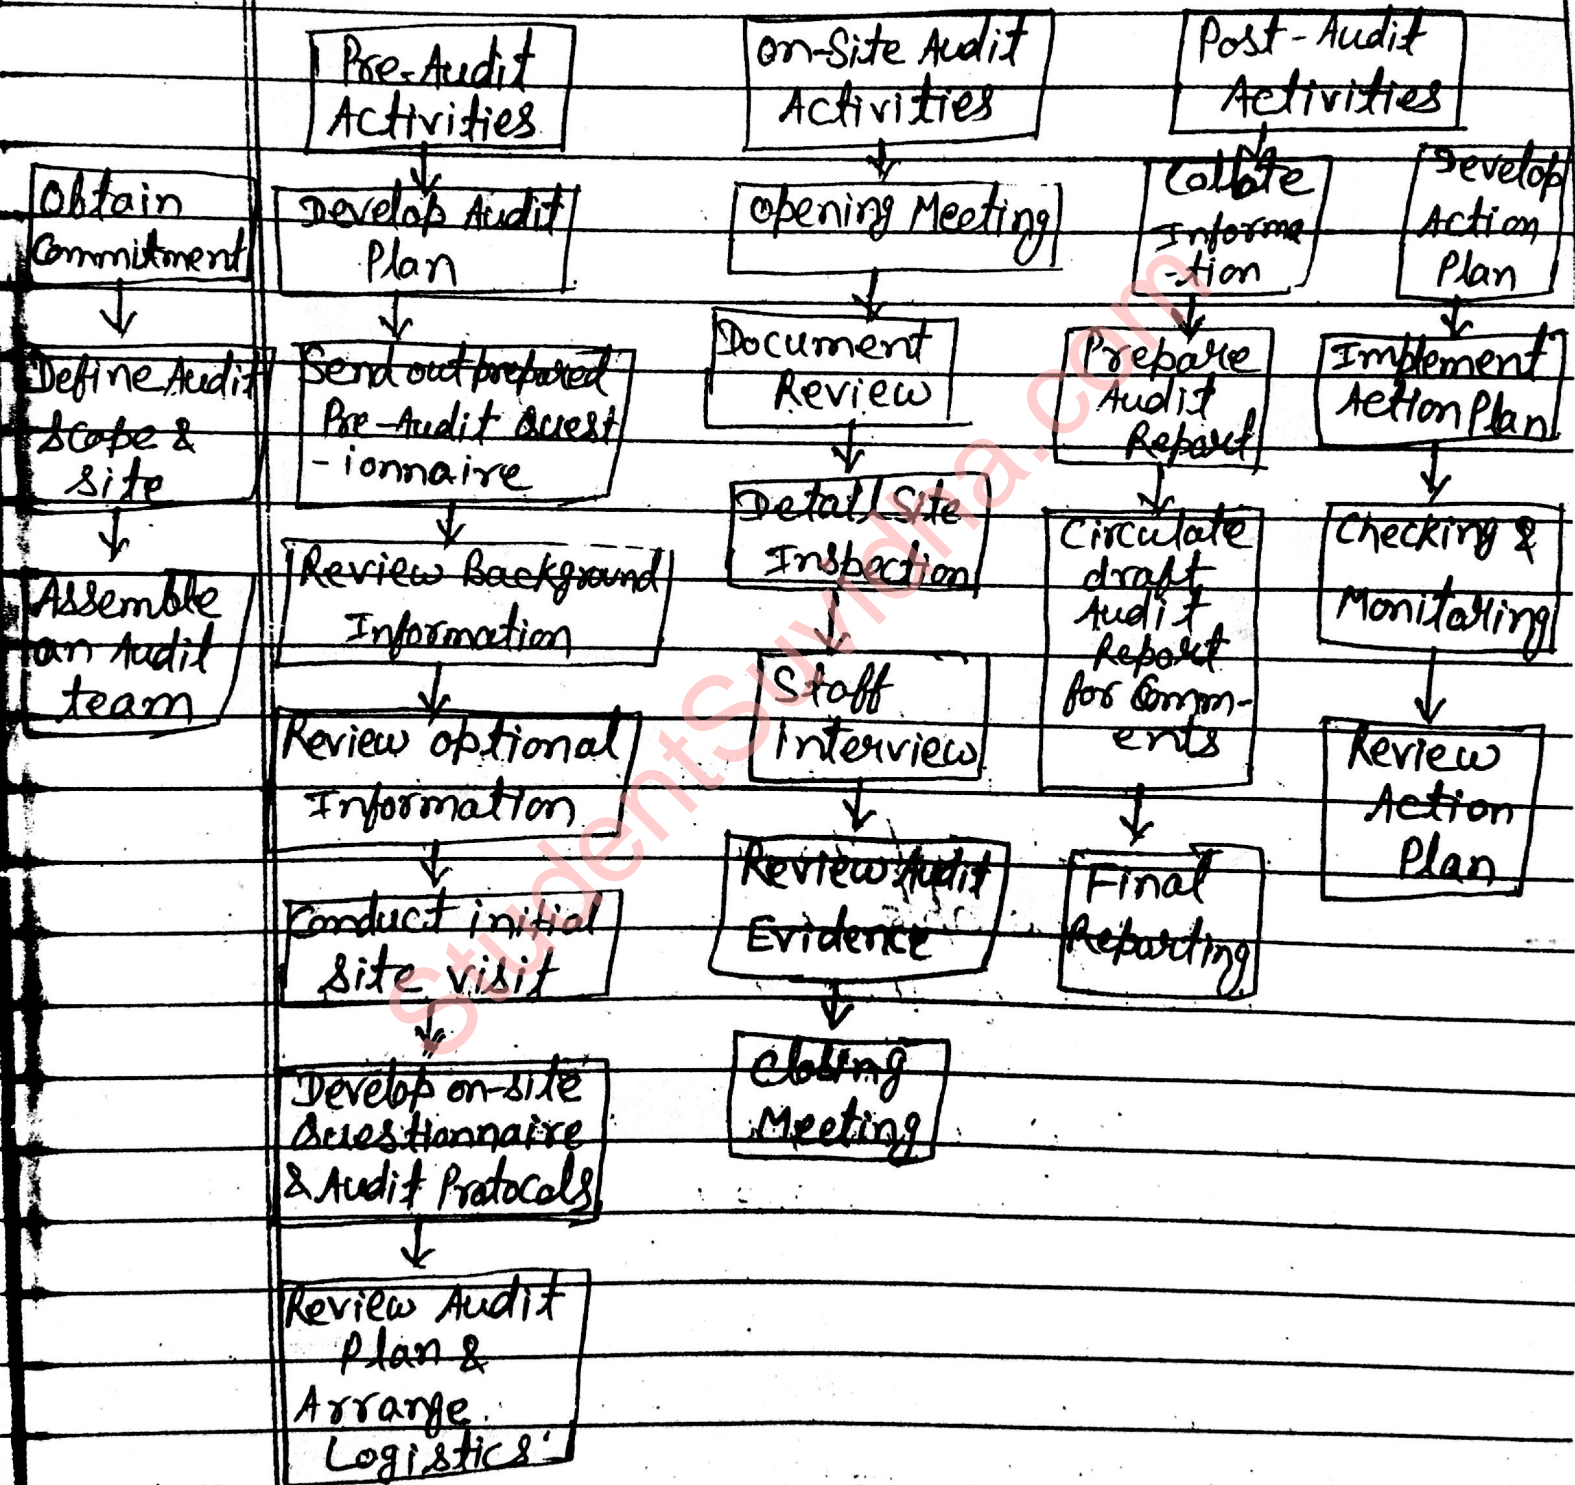 Pre-Audit
Activities
Obtain
Commitment
Define Audit
Scope &
site
Assemble
an Audit
team
Develop Audit
Plan
Send out prepared
Pre-Audit Quest
-ionnaire
Review Background
Information
Review optional
Information
Conduct initial
site visit
Develop on-site
Questionnaire
& Audit Protocols
Review Audit
Plan &
Arrange
Logistics
On-Site Audit
Activities
Opening Meeting
Document
Review
Detail Site
Inspection
Staff
interview
Review Audit
Evidence
Closing
Meeting
Post-Audit
Activities
Collate
Informa
-tion
Prepare
Audit
Report
Circulate
draft
Audit
Report
for Comm-
ents
Final
Reporting
Develop
Action
Plan
Implement
Action Plan
Checking &
Monitoring
Review
Action
Plan
StudentSuvidha.com